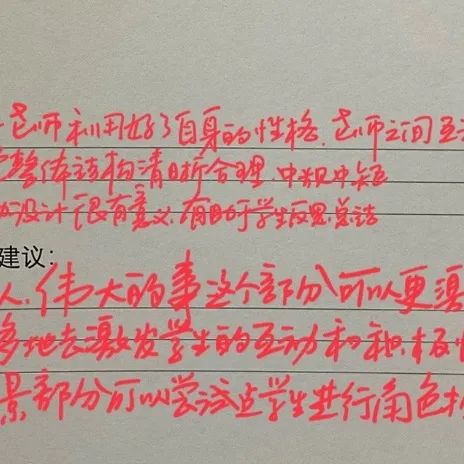 老师利用好了自身的性格.老师之间互
整体该构清晰合理.中规中矩
设计很有意义.有助于学生反思总结
建议：
人.伟大的事这个部分可以更
多地去激发学生的互动和积极
景部分可以尝试让学生进行角色